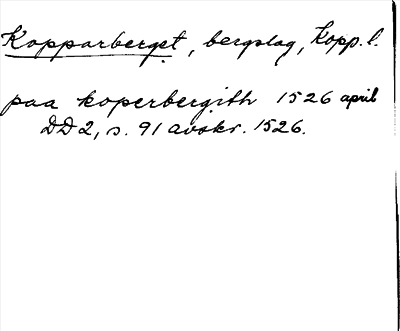 Kopparberget, bergslag, Kopp. l.
paa koperbergith 1526 april
DD2, s. 91 avskr. 1526.